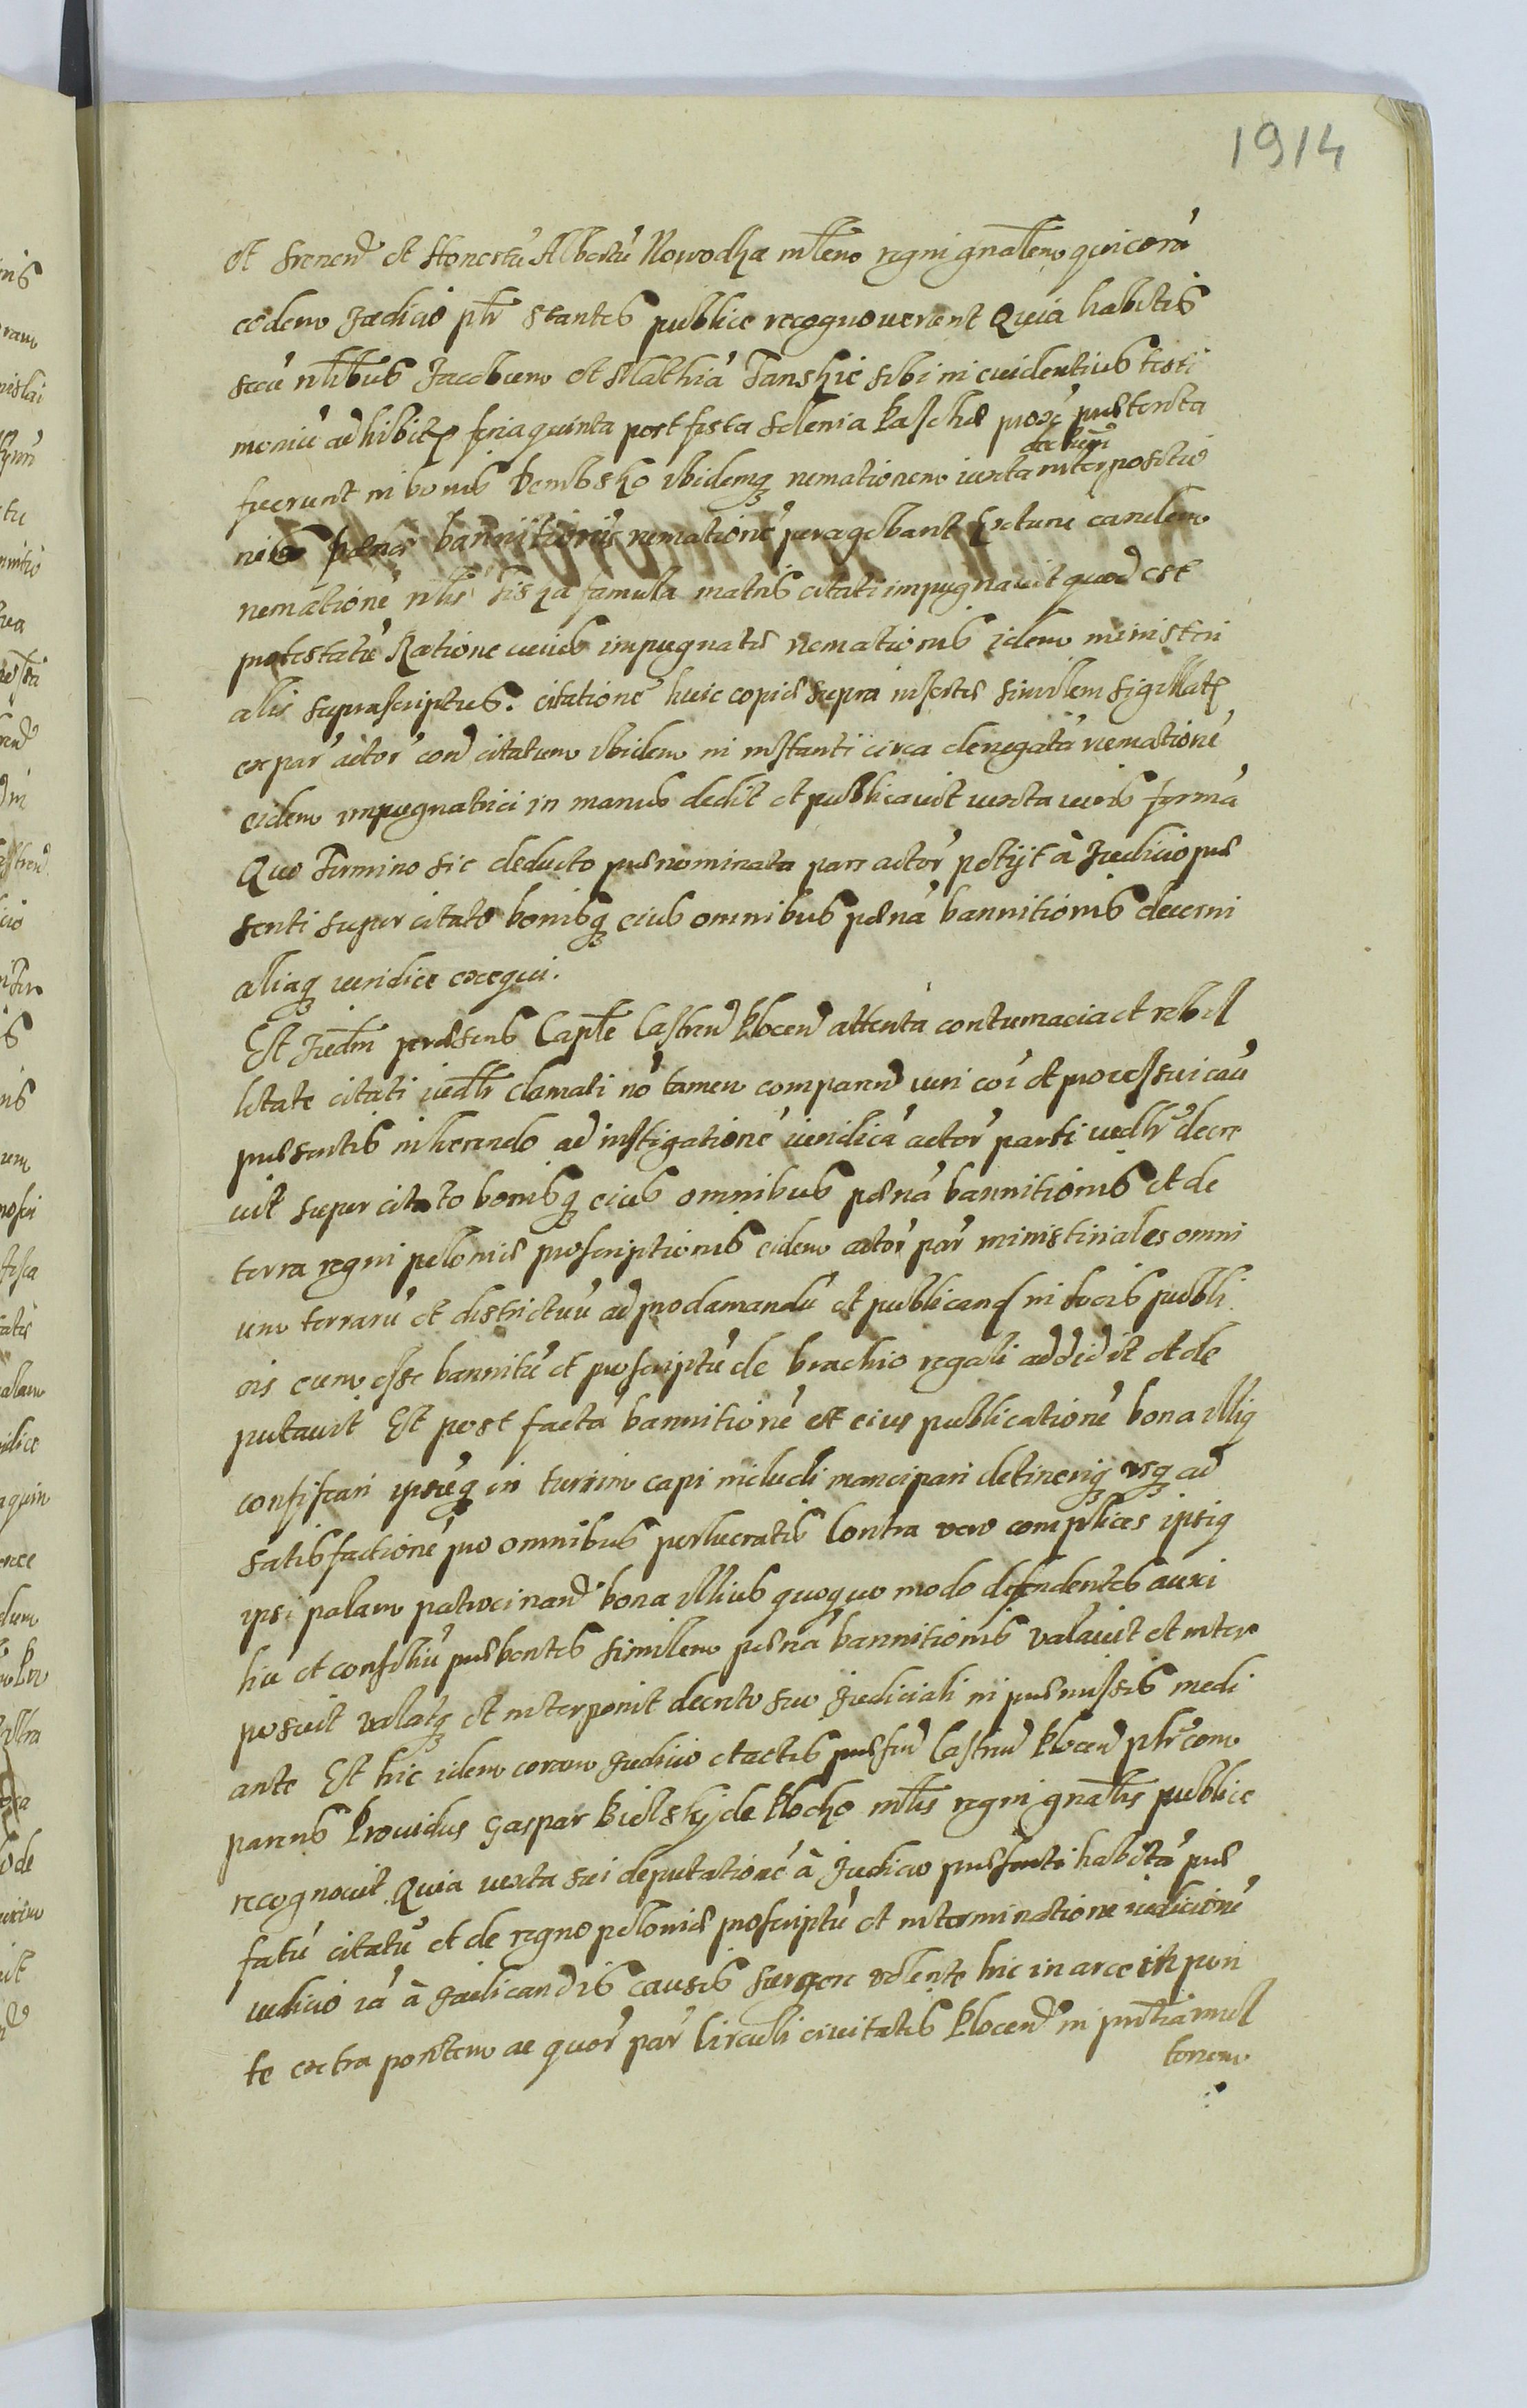 1914
et srenen̄ et Honestū Albertū Nowodka mlem regni gnalem qui corā
eodem Judicio plr stantes publice recognouerunt Quia habitis
secū nlibus Jacobum et Mathiā Tanskie sibi in euidentius testi
moniū adhibitꝭ feria quinta post festa solenia Paschae prox praeterita
fuerunt in bonis Dembsko ibidemq nemationem iuxta interpositio
decreti
nis paenā bannitionis nemationē peragebant Extunc eandem
nemationē nlis famula matris citati impugnauit quod est
protestatū Ratione cuius impugnatae nemationis idem ministeri
alis suprascriptus. citationē huic copiae supra insertae similem sigillatꝭ
ex par actor con citatum ibidem in instanti circa denegatā nemationē
eidem impugnatrici in manus dedit et publicauit iuxta iuris formā
Quo Termino sic deducto praenominata pars actor petijt à Judicio prae
senti super citato bonisq eius omnibus paenā bannitionis decerni
aliaq iuridice exequi.
Et Judm praesens Caple Castren Plocen attenta contumacia et rebel
litate citati iudlr clamati nō tamen comparen iuri coī et processui cau
praesentis inherendo ad instigationē iuridicā actor parti iudlr decre
uit super citato bonisq eius omnibus paenā bannitionis et de
terra regni poloniae proscriptionis eidem actor par ministeriales omni
um terrarū et districtuū ad proclamandū et publicand in locis publi
cis eum esse bannitū et proscriptū de brachio regali addidit et de
putauit Et post factā bannitionē et eius publicationē bona illiq
confiscari ipsūq in turrim capi includi mancipari detineriq usq ad
satisfactionē pro omnibus perlucratis Contra vero complices ipsiq
ipsi palam patrocinan bona illius quoquo modo defendentes auxi
liū et consiliū praebentes similem paenā bannitionis valauit et inter
posuit valatq et interponit decreto suo Judiciali in praemissis medi
ante Et hic idem coram Judicio et actis praesen Castren Plocen plr com
parens Prouidus Gaspar Bielskÿ de Plocko mlis regni gnalis publice
recognouit Quia iuxta sui deputationē à Judicio praesenti habitā prae
fatū citatū et de regno poloniae proscriptū et in terminatione iudiciorū
iudicio iā à Judicandis causis surgere volente hic in arce in pon
te extra pontem ac quor par Circuli ciuitatis Plocen in pntia mul
torum